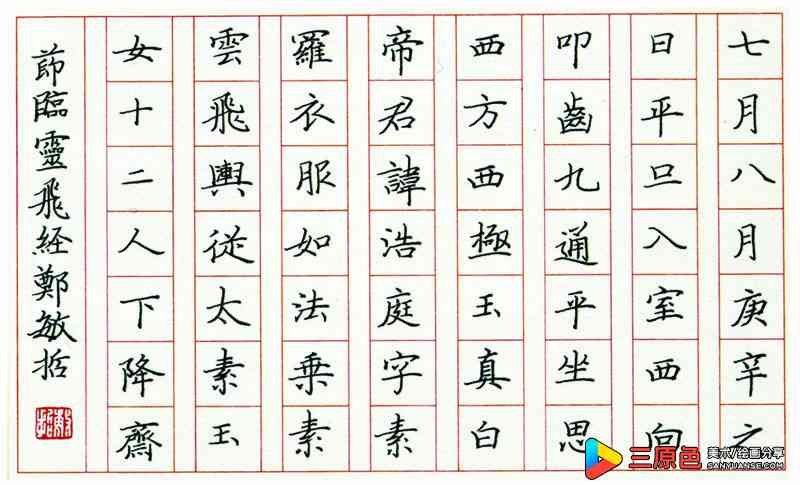 七月八月庚辛之
日平旦入室西向
叩齒九通平坐思
西方西極玉真白
帝君諱浩庭字素
羅衣服如法乗素
雲飛輿從太素玉
女十二人下降齋
節臨靈飛经鄭敏哲
三原色
美术/绘画分享
SANYUANSE.COM